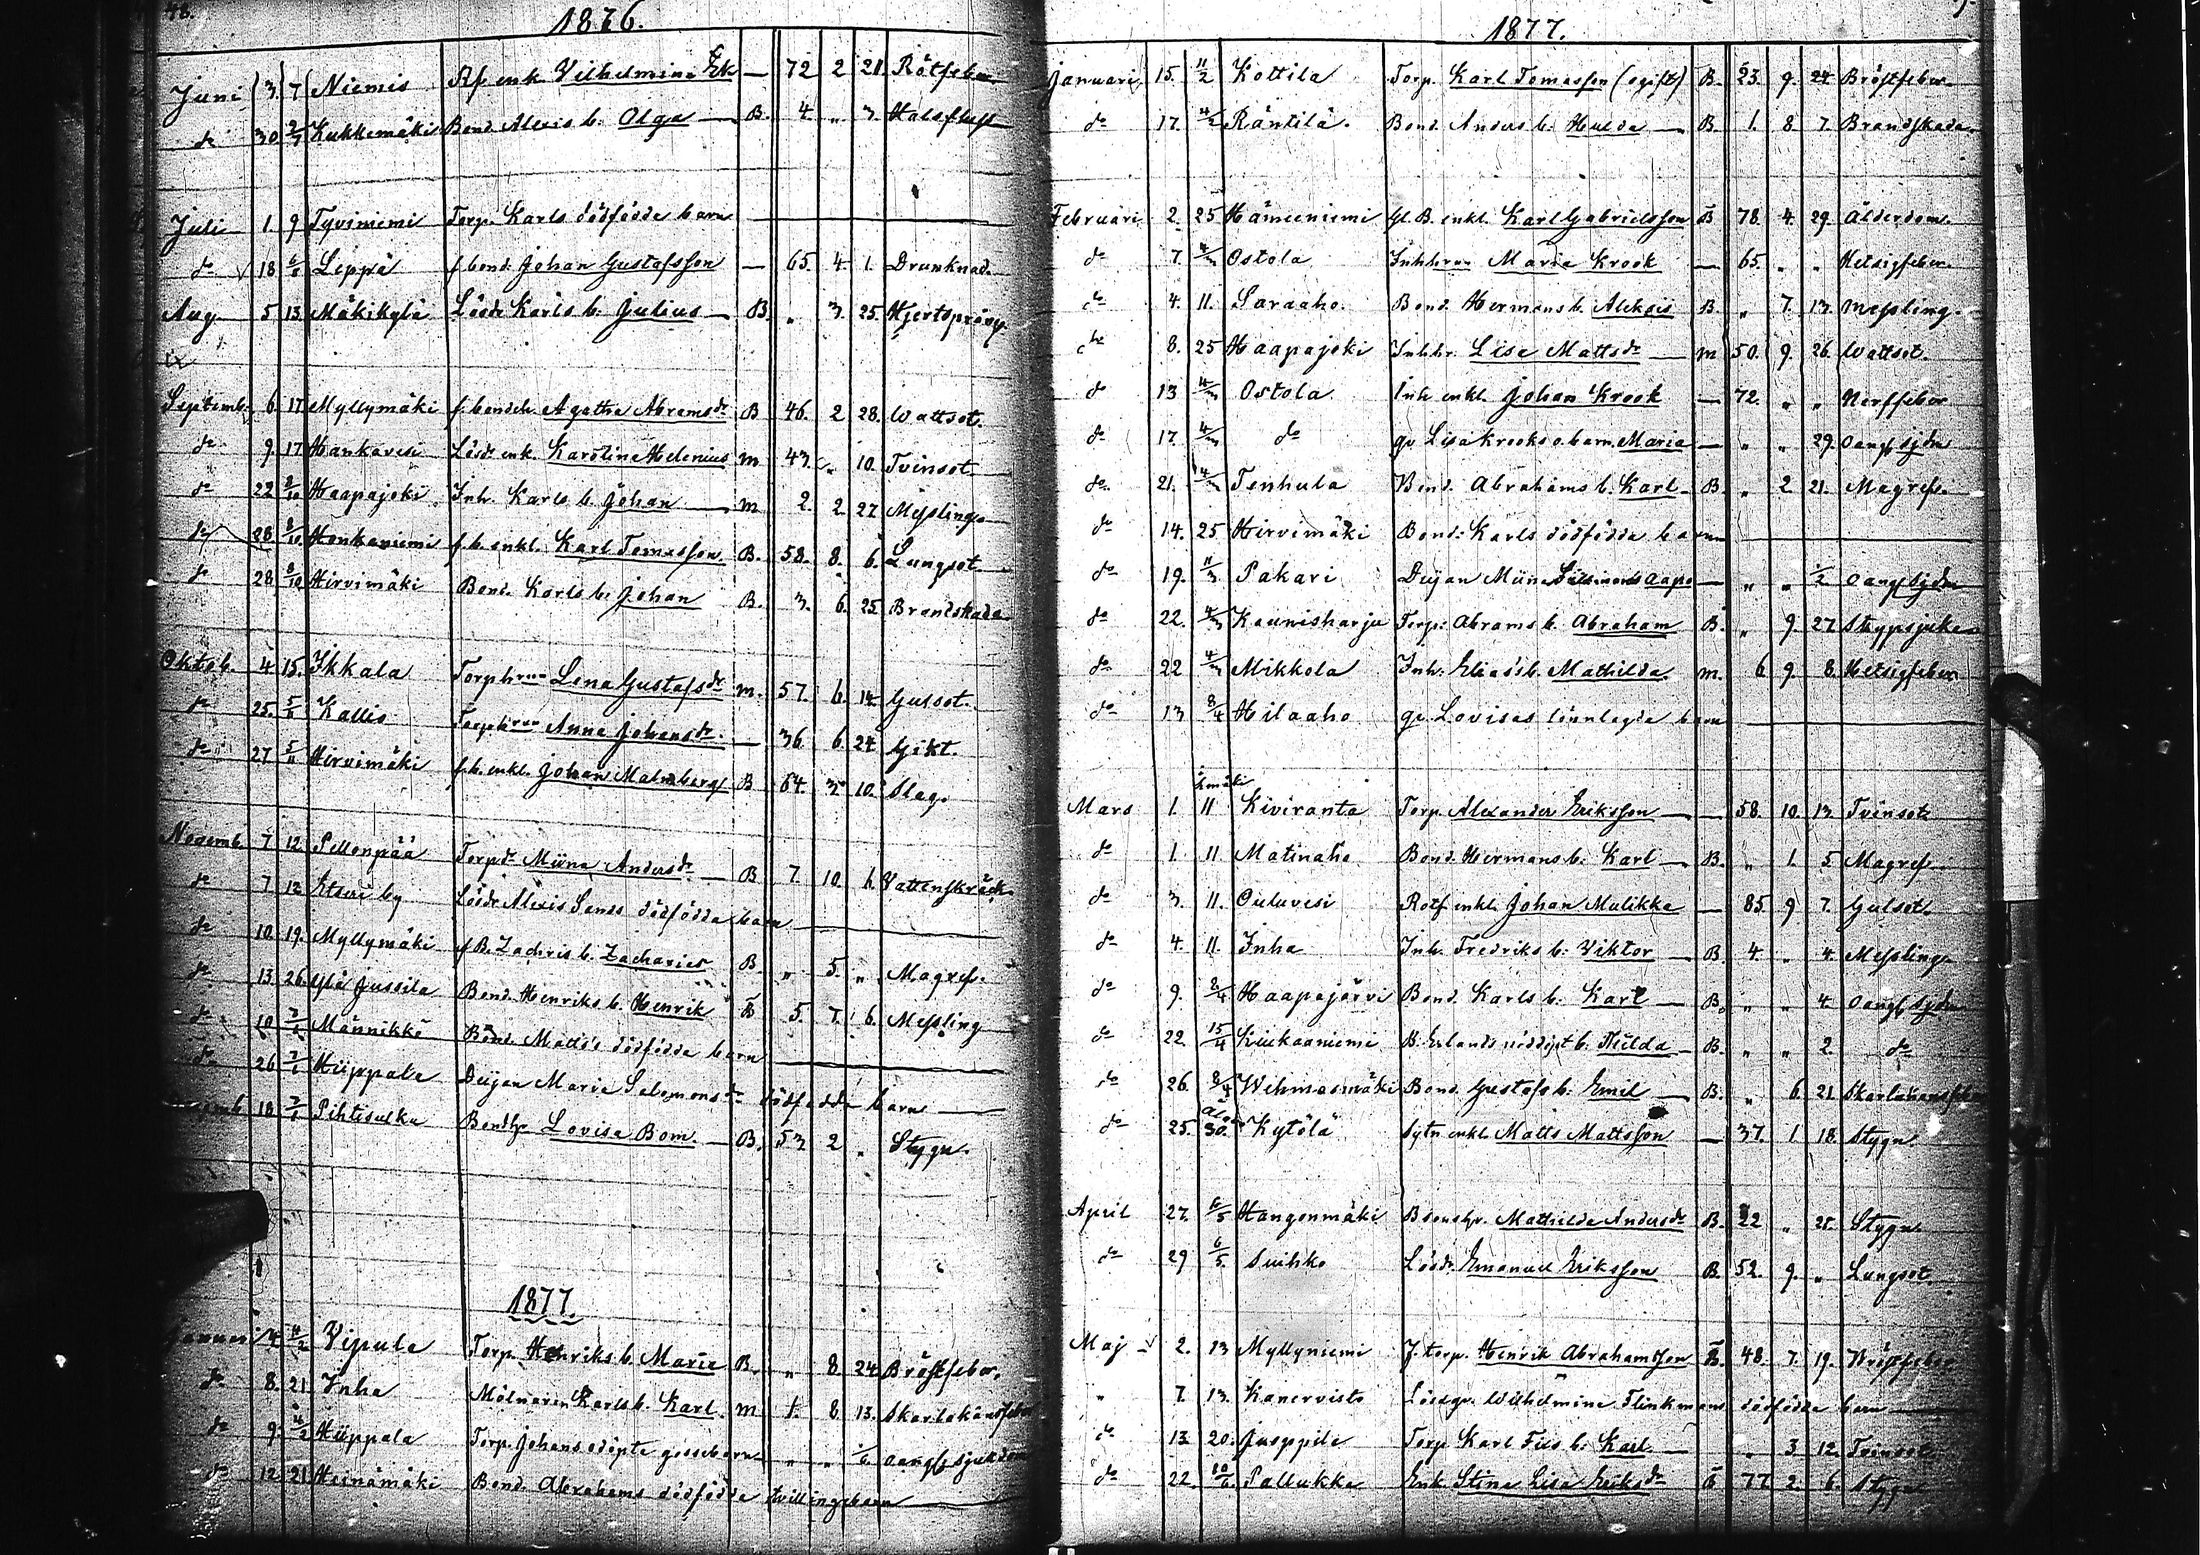 48.
1876.
Juni 3. 7 Niemis Rf enk. Vilhelmina Ek — 72 2 21. Rötfeber
do 30. 2/7 Kukkemäki Bond Alexis b. Olga — B. 4. „ 3. Halsfluss
Juli 1. 9 Tyviniemi Torp. Karls dödfödda barn
do 18 Leppä f. bond. Johan Gustafsson — 65. 4. 1. Drunknad.
Aug. 5 13. Mäkikylä Lösdr Karls b. Julius — B. „ 3. 25.
Septemb. 6. 17. Myllymäki Agatha Abramsdr B 46. 2 28. Wattsot.
do 9. 17. Hankavesi Lösd. enk. Karolina Helenius m 43. „ 10. Tvinsot
do 22 8/10 Haapajoki Inh. Karls b. Johan — m 2. 2 27 Messling
do 28. 8/10 Honkaniemi f. b. enkl. Karl Tomasson B. 58. 8. 6. Lungsot
do 28. 8/10 Hirvimäki Bond. Karls b. Johan B. 3. 6. 25 Brandskada
Oktob. 4 15. Ikkala Torphrun Lena Gustafsdr m. 57. 6. 14. Gulsot.
do 25. Kallis Torphrun Anna Johansdr — 36. 6. 24 Gikt.
do 27 Hirvimäki f. b. enkl. Johan Malmberg B 64. 3. 10. Slag.
Novemb. 7 12. Pellonpää Torpdr Miina Andersdr — B 7. 10. 6. Vattenskräck
do 7 12 Etseri by Lösdr Alexis Sands dödfödda barn
do 10. 19. Myllymäki f B. Zachris b. Zacharias B. „ 5. „ Magref.
do 13. 26. Ylä Jussila Bond. Henriks b. Henrik B 5. 7. 6. Messling
do 10 7/1 Männikkö Bond. Matts's dödfödda barn
do 26 7/1 Hiippala Deijan Maria Salomonsdr dödfödda barn
18 7/1 Pihtisulku Lovisa Bom. — B. 53 2 „ Stygn.
1877.
Januari 4/2 Vipula Torp. Henriks b. Maria B. „ 8. 24. Bröstfeber.
do 8. 21. Inha Mölnaren Karls b. Karl. m 1. 8. 13. Skarlakansfeber
do 9. 4/2 Hiippala Torp. Johans odöpta gossebarn „ „ oangf. sjukdom
do 12. 21. Heinämäki Bond. Abrahams dödfödda tvillingsbarn
1877.
Januari 15. 11/2 Kottila Torp. Karl Tomasson (ogift) B. 23. 9. 24. Bröstfeber
do 17. Räntilä. Bond. Anders b. Hulda — B. 1. 8 7. Brandskada.
Februari 2. 25 Hämeeniemi Gl. B. enkl. Karl Gabrielsson B 78. 4. 29. Ålderdom.
do 7. 4/3 Ostola Inhhrun Maria Krook — 65. „ „ Hetsigfeber
do 4. 11. Saraaho. Bond. Hermans b. Aleksis B. „ 7. 13. Messling.
do 8. 25 Haapajoki Inhhr. Lisa Mattsdr — m 50. 9. 26. Wattsot.
do 13 4/3 Ostola Inh enkl. Johan Krook — 72. „ „ Nerffeber
do 17. 4/3 do qv Lisa Krooks o. barn. Maria — „ „ 29 oangf sjdm
do 21. 4/3 Tenhula Bond. Abrahams b. Karl. B. „ 2 21. Magref.
do 14. 25 Hirvimäki Bond. Karls dödfödda barn
do 19. 11/3 Pakari Deijan Miina Salomonds Aapo — „ „ 1/2 oangf sjdm
do 22. 4/3 Kaunisharju Torp. Abrams b. Abraham B. „ 9. 27. Strypsjuka
do 22 4/3 Mikkola Inh. Elias's b. Mathilda. m. 6 9. 8. Hetsigfeber
do 13 8/4 Hilaaho qv. Lovisas lönnlagda barn
Mars 1. 11 Kiviranta Torp. Alexander Eriksson — 58. 10. 13. Tvinsot
do 1. 11 Matinaho Bond. Hermans b. Karl — B. „ 1. 5 Magref
do 3. 11. Ouluvesi Rotf enkl. Johan Mulikka — 85. 9 7. Gulsot.
do 4. 11. Inha Inh. Fredriks b. Viktor — B. 4. „ 4. Messling
do 9. 8/4 Haapajärvi Bond. Karls b. Karl — B. „ „ 4. oangf sjdm
do 22 15/4 Kiukaaniemi B. Erlands nöddöpt b. Hilda — B. „ „ 2. do
do 26. 8/4 Wehmasmäki Bond. Gustafs b. Emil — B. „ 6 21. Skarlakansfeber
do 25. 30 Kytölä Sytn enkl. Matts Mattsson — 37. 1. 18. Stygn
April 27. 6/5 Hangonmäki Mathilda Andersdr B. 22 „ 25. Stygn
do 29 6/5 Suihko Lösdr Emanuel Eriksson B. 52. 9. „ Lungsot.
Maj 2. 13 Myllyniemi F. torp. Henrik Abrahamsson B. 48. 7. 19. Bröstfeber
„ 7. 13. Kanervisto Lösaqv. Wilhelmina Flinkmans dödfödda barn
do 13 20. Juoppila Torp Karl Fius b. Karl. — „ 3 12. Tvinsot
do 22. 10/6 Pallukka Enk. Stina Lisa Eriksdr B 77. 2. 6. Stygn